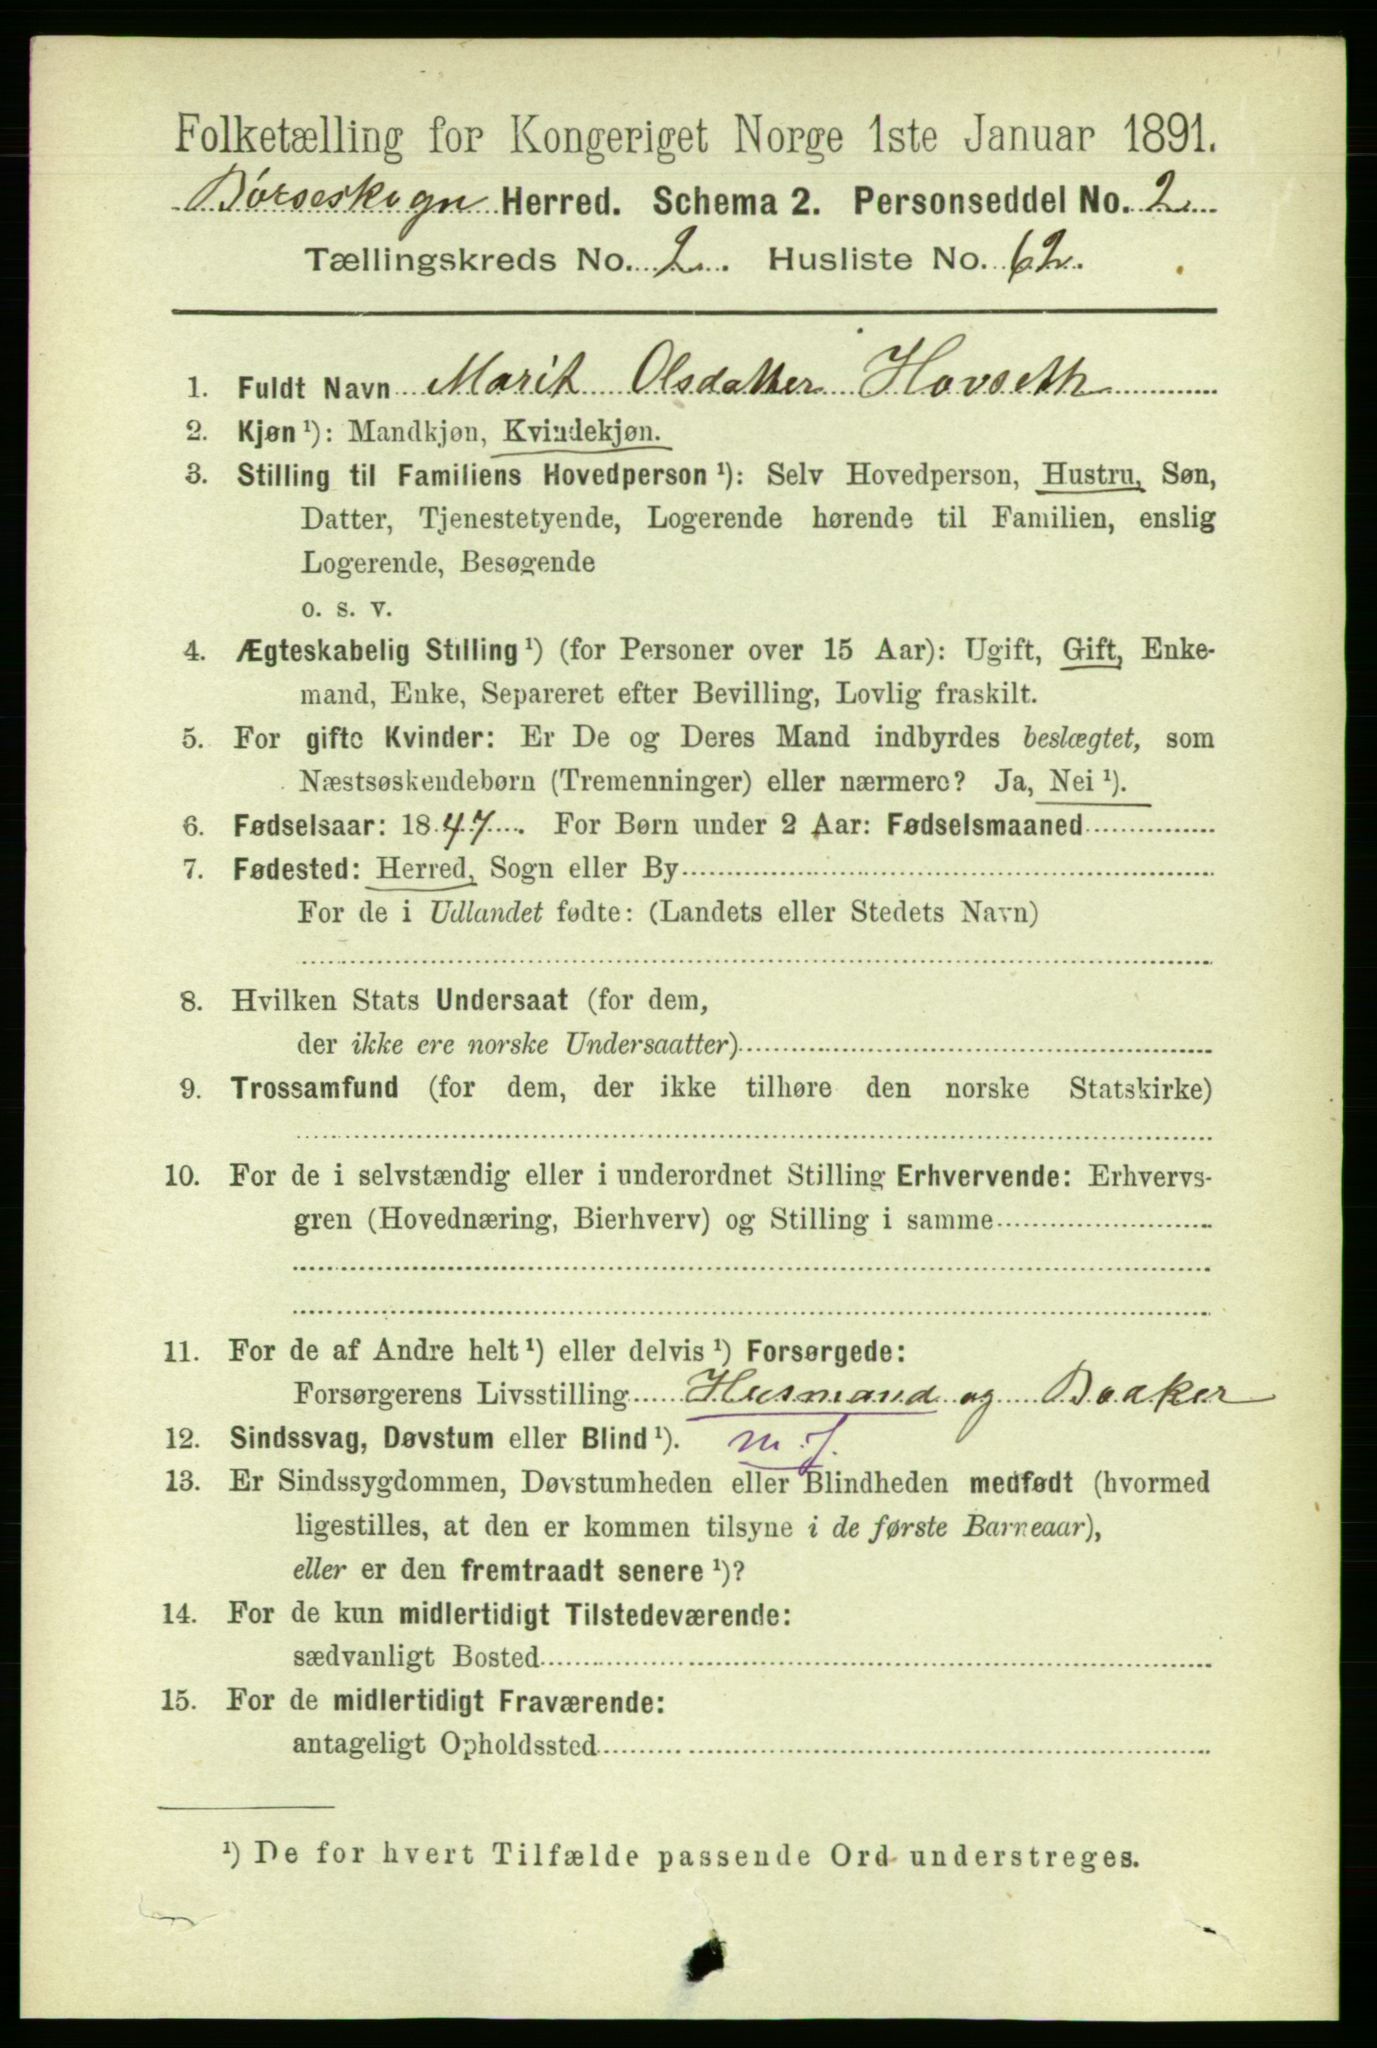 Folketælling for Kongeriget Norge 1ste Januar 1891.
Børseskogn Herred. Schema 2. Personseddel No. 2
Tællingskreds No. 2. Husliste No. 62.
1. Fuldt Navn Marit Olsdatter Hovseth
2. Kjøn ¹): Mandkjøn, Kvindekjøn.
3. Stilling til Familiens Hovedperson ¹): Selv Hovedperson, Hustru, Søn,
Datter, Tjenestetyende, Logerende hørende til Familien, enslig
Logerende, Besøgende
o. s. v.
4. Ægteskabelig Stilling ¹) (for Personer over 15 Aar): Ugift, Gift, Enke-
mand, Enke, Separeret efter Bevilling, Lovlig fraskilt.
5. For gifte Kvinder: Er De og Deres Mand indbyrdes beslægtet, som
Næstsøskendebørn (Tremenninger) eller nærmere? Ja, Nei ¹).
6. Fødselsaar: 1847. For Børn under 2 Aar: Fødselsmaaned
7. Fødested: Herred, Sogn eller By
For de i Udlandet fødte: (Landets eller Stedets Navn)
8. Hvilken Stats Undersaat (for dem,
der ikke ere norske Undersaatter)
9. Trossamfund (for dem, der ikke tilhøre den norske Statskirke)
10. For de i selvstændig eller i underordnet Stilling Erhvervende: Erhvervs-
gren (Hovednæring, Bierhverv) og Stilling i samme
11. For de af Andre helt ¹) eller delvis ¹) Forsørgede:
Forsørgerens Livsstilling Husmand og Bødker
12. Sindssvag, Døvstum eller Blind ¹). m. J.
13. Er Sindssygdommen, Døvstumheden eller Blindheden medfødt (hvormed
ligestilles, at den er kommen tilsyne i de første Barneaar),
eller er den fremtraadt senere ¹)?
14. For de kun midlertidigt Tilstedeværende:
sædvanligt Bosted
15. For de midlertidigt Fraværende:
antageligt Opholdssted
¹) De for hvert Tilfælde passende Ord understreges.